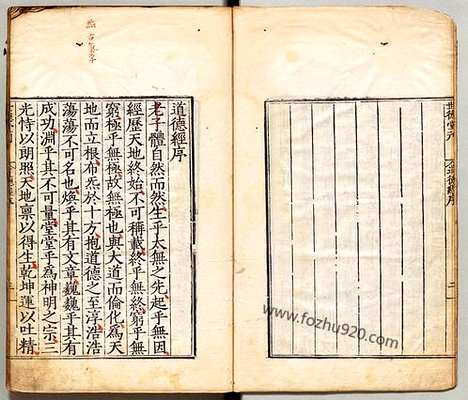 道德經序
老子體自然而然生乎太無之先起乎無因
經歷天地終始不可稱載終乎無終窮乎無
窮極乎無極故無極也與大道而倫化為天
地而立根布炁於十方抱道德之至淳浩浩
蕩蕩不可名也煥乎其有文章巍巍乎其有
成功淵乎其不可量堂堂乎為神明之宗三
光恃以朗照天地禀以得生乾坤運以吐精
世德堂刊
道德經序
www.fozhu920.com